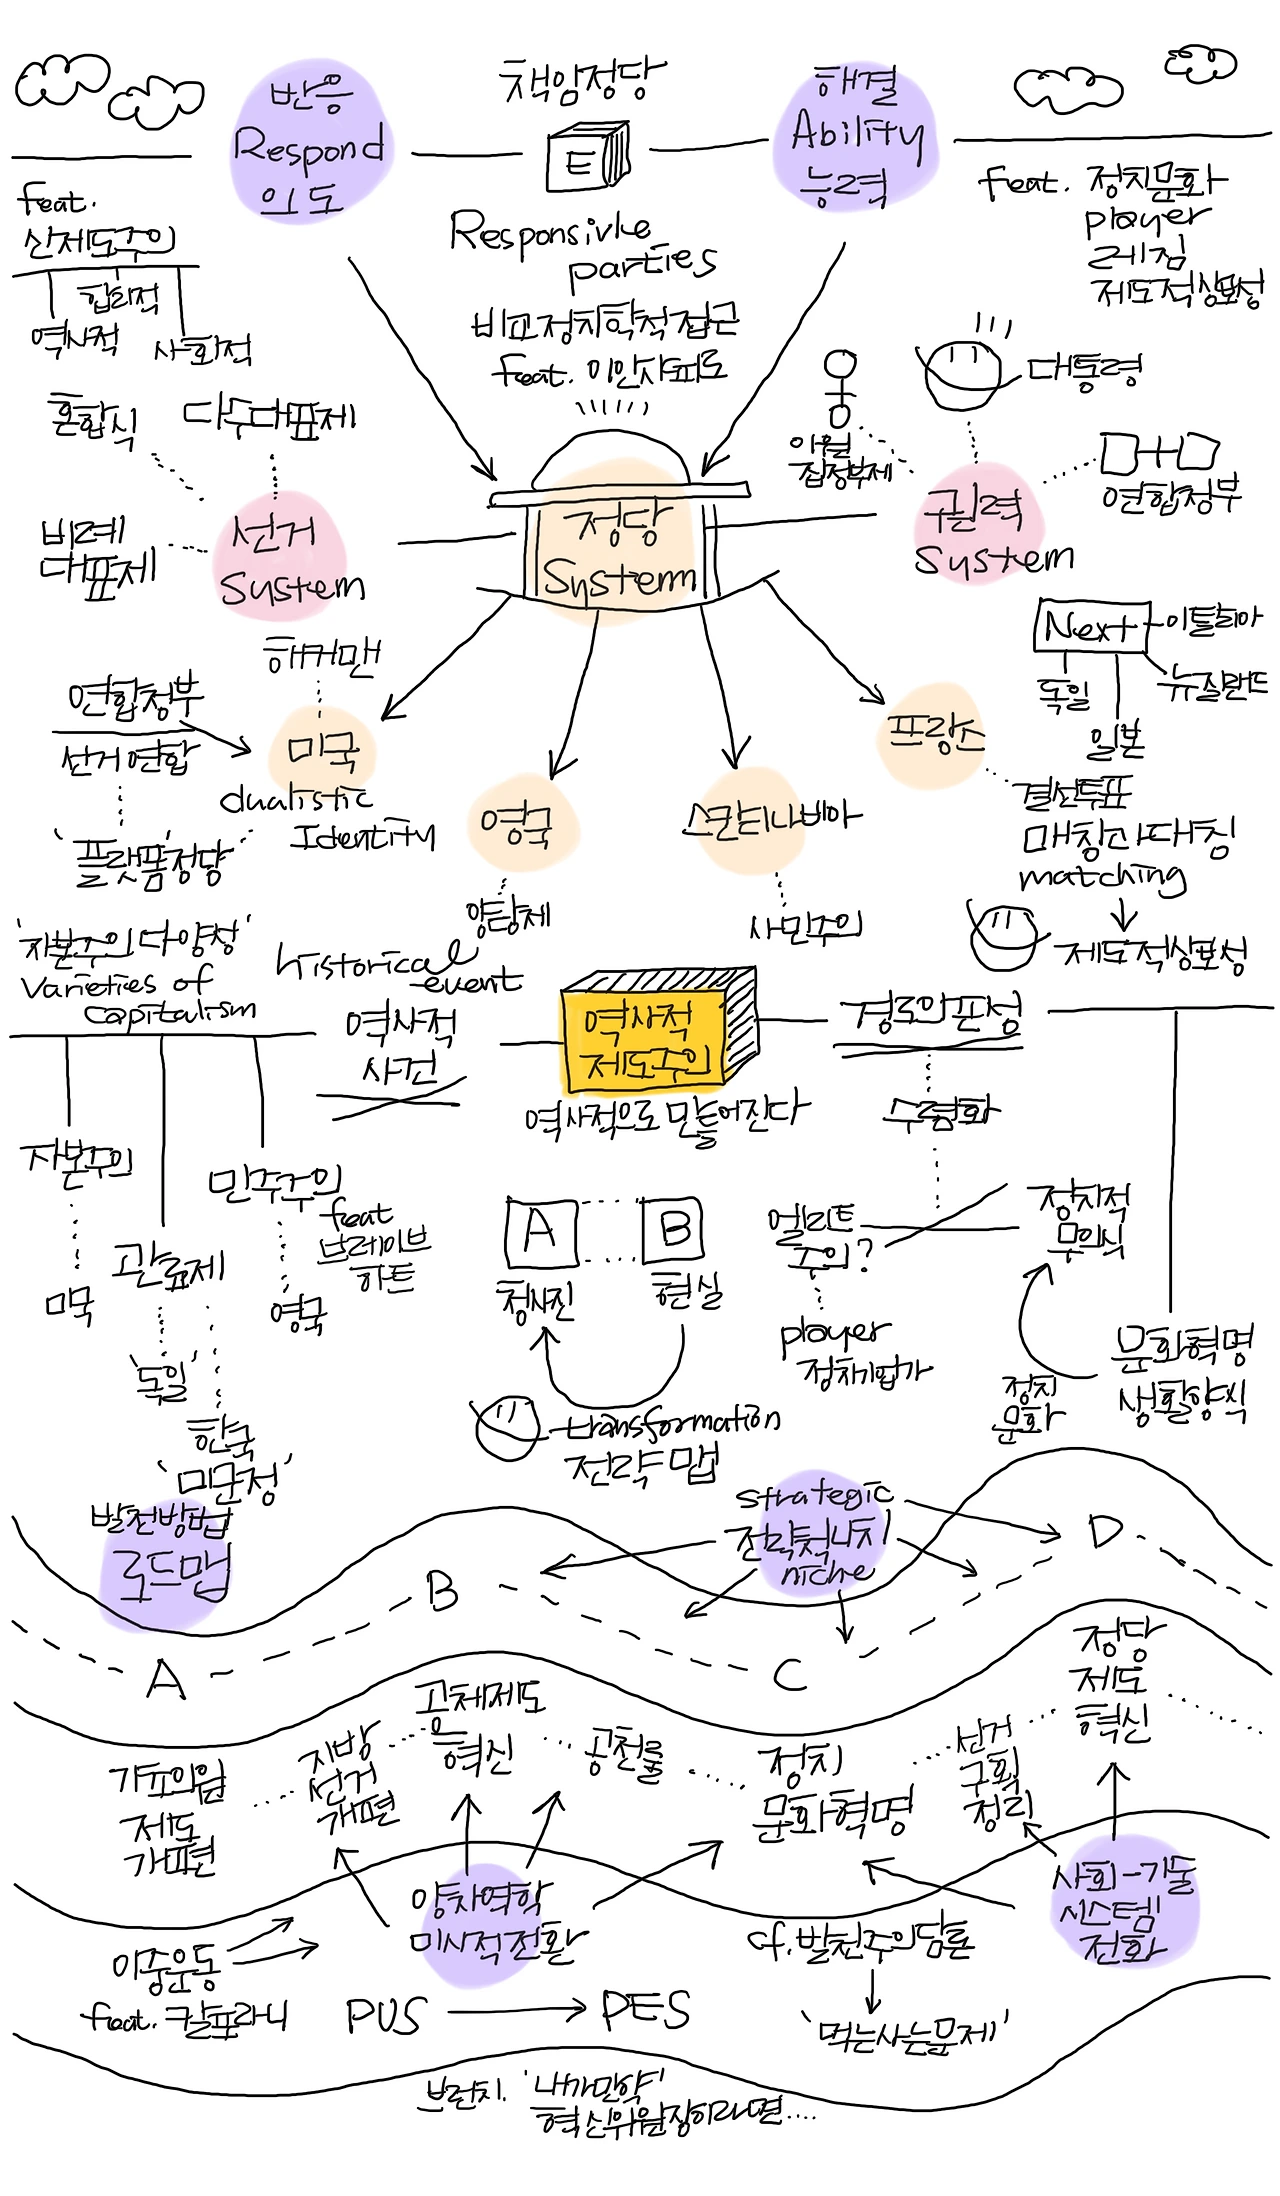 반응
Respond
의도
책임정당
E
해결
Ability
능력
feat.
신제도주의
합리적
역사적
사회적
Responsivke
parties
비교정치학적접근
feat. 이안샤피로
feat. 정치문화
player
레짐
제도적상보성
혼합식
다수대표제
비례
대표제
선거
System
정당
System
이원
집정부제
대통령
연합정부
권력
System
Next
이탈리아
독일
일본
뉴질랜드
해커맨
연합정부
선거연합
'플랫폼'정당
미국
dualistic
Identity
영국
양당제
스칸티나비아
사민주의
프랑스
결선투표
매칭과대칭
matching
제도적상보성
'자본주의다양성'
varieties of
capitalism
historical
event
역사적
사건
역사적
제도주의
역사적으로 만들어진다
경로의존성
수렴화
자본주의
미국
관료제
'독일'
한국
'미군정'
민주주의
feat
브레이브
하트
영국
A
B
청사진
현실
transformation
전략 맵
엘리트
주의?
player
정치기업가
정치적
무의식
정치
문화
문화혁명
생활양식
발전방법
로드맵
strategic
전략적니치
niche
A
B
C
D
가표의원
제도
개편
지방
선거
개편
공천제도
혁신
공천룰
정치
문화혁명
선거
구획
정리
정당
제도
혁신
양자역학
미시적전환
사회-기술
시스템
전화
이중운동
feat. 칼폴라니
PUS
PES
cf. 발전주의담론
'먹는사는문제'
브런치. '내가만약'
혁신위원장이라면....